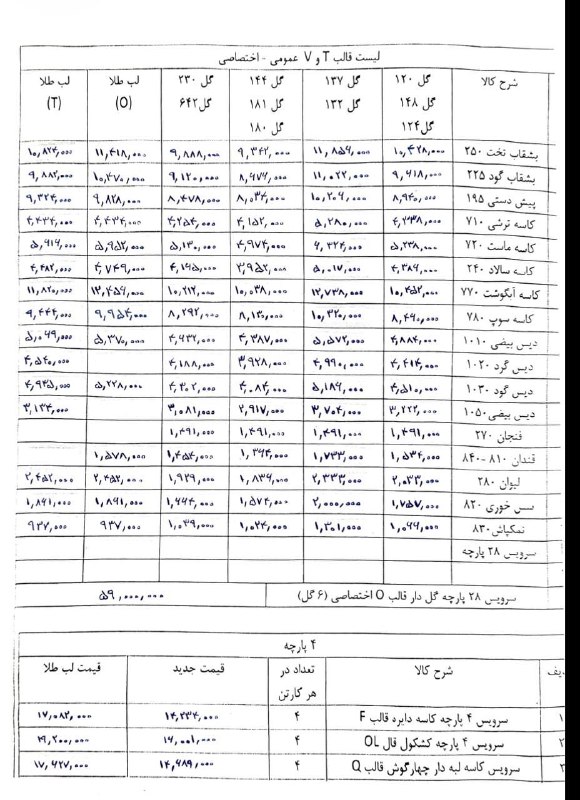 لیست قالب T و V عمومی - اختصاصی
شرح کالا گل ۱۲۰ گل ۱۳۷ گل ۱۴۴ گل ۲۳۰ لب طلا لب طلا
گل ۱۴۸ گل ۱۳۲ گل ۱۸۱ گل ۶۴۲ (O) (T)
گل ۱۲۴ گل ۱۸۰
بشقاب تخت ۲۵۰ ۱۰,۴۲۸,۰۰۰ ۱۱,۸۵۶,۰۰۰ ۹,۳۴۲,۰۰۰ ۹,۸۸۸,۰۰۰ ۱۱,۴۱۸,۰۰۰ ۱۰,۸۲۴,۰۰۰
بشقاب گود ۲۲۵ ۹,۶۱۸,۰۰۰ ۱۱,۰۲۲,۰۰۰ ۸,۶۷۶,۰۰۰ ۹,۱۲۰,۰۰۰ ۱۰,۴۷۰,۰۰۰ ۹,۸۸۲,۰۰۰
پیش دستی ۱۹۵ ۸,۹۴۰,۰۰۰ ۱۰,۲۰۶,۰۰۰ ۸,۰۳۴,۰۰۰ ۸,۴۷۸,۰۰۰ ۹,۸۲۸,۰۰۰ ۹,۳۲۴,۰۰۰
کاسه ترشی ۷۱۰ ۵,۲۸۰,۰۰۰ ۴,۱۵۲,۰۰۰ ۴,۲۵۴,۰۰۰ ۴,۴۳۴,۰۰۰ ۴,۴۳۴,۰۰۰
کاسه ماست ۷۲۰ ۵,۲۳۸,۰۰۰ ۶,۳۲۴,۰۰۰ ۴,۹۷۴,۰۰۰ ۵,۱۳۰,۰۰۰ ۵,۹۵۲,۰۰۰ ۵,۶۱۶,۰۰۰
کاسه سالاد ۲۴۰ ۴,۳۸۶,۰۰۰ ۵,۰۱۷,۰۰۰ ۳,۹۵۲,۰۰۰ ۴,۱۹۵,۰۰۰ ۴,۷۴۹,۰۰۰ ۴,۴۸۲,۰۰۰
کاسه آبگوشت ۷۷۰ ۱۰,۴۵۲,۰۰۰ ۱۲,۷۳۸,۰۰۰ ۱۰,۰۳۸,۰۰۰ ۱۰,۲۱۲,۰۰۰ ۱۲,۴۵۶,۰۰۰ ۱۱,۸۲۰,۰۰۰
کاسه سوپ ۷۸۰ ۸,۴۹۰,۰۰۰ ۱۰,۳۲۰,۰۰۰ ۸,۱۳۰,۰۰۰ ۸,۲۹۲,۰۰۰ ۹,۹۵۴,۰۰۰ ۹,۴۴۴,۰۰۰
دیس بیضی ۱۰۱۰ ۴,۸۸۴,۰۰۰ ۵,۵۷۲,۰۰۰ ۴,۳۸۷,۰۰۰ ۴,۶۳۲,۰۰۰ ۵,۳۷۰,۰۰۰ ۵,۰۶۹,۰۰۰
دیس گرد ۱۰۲۰ ۴,۴۱۴,۰۰۰ ۴,۹۹۰,۰۰۰ ۳,۹۲۸,۰۰۰ ۴,۱۸۸,۰۰۰ ۴,۵۴۰,۰۰۰
دیس گود ۱۰۳۰ ۴,۵۱۰,۰۰۰ ۵,۱۸۶,۰۰۰ ۴,۰۸۴,۰۰۰ ۴,۳۰۲,۰۰۰ ۵,۲۲۸,۰۰۰ ۴,۹۴۵,۰۰۰
دیس بیضی ۱۰۵۰ ۳,۲۲۲,۰۰۰ ۳,۷۰۴,۰۰۰ ۲,۹۱۷,۰۰۰ ۳,۰۸۱,۰۰۰ ۳,۱۳۴,۰۰۰
فنجان ۲۷۰ ۱,۴۹۱,۰۰۰ ۱,۴۹۱,۰۰۰ ۱,۴۹۱,۰۰۰ ۱,۴۹۱,۰۰۰
قندان ۸۱۰-۸۴۰ ۱,۵۳۴,۰۰۰ ۱,۷۳۳,۰۰۰ ۱,۳۶۴,۰۰۰ ۱,۴۵۴,۰۰۰ ۱,۵۷۸,۰۰۰
لیوان ۲۸۰ ۲,۰۳۳,۰۰۰ ۲,۳۳۳,۰۰۰ ۱,۸۳۶,۰۰۰ ۱,۹۲۹,۰۰۰ ۲,۴۵۲,۰۰۰ ۲,۴۵۲,۰۰۰
سس خوری ۸۲۰ ۱,۷۵۷,۰۰۰ ۲,۰۰۰,۰۰۰ ۱,۵۷۴,۰۰۰ ۱,۶۶۴,۰۰۰ ۱,۸۶۱,۰۰۰ ۱,۸۶۱,۰۰۰
نمکپاش ۸۳۰ ۱,۰۶۶,۰۰۰ ۱,۳۰۱,۰۰۰ ۱,۰۲۴,۰۰۰ ۱,۰۳۹,۰۰۰ ۹۳۷,۰۰۰ ۹۳۷,۰۰۰
سرویس ۲۸ پارچه
سرویس ۲۸ پارچه گل دار قالب O اختصاصی (۶ گل) ۵۹,۰۰۰,۰۰۰
۴ پارچه
ردیف شرح کالا تعداد در هر کارتن قیمت جدید قیمت لب طلا
۱ سرویس ۴ پارچه کاسه دایره قالب F ۴ ۱۴,۲۳۴,۰۰۰ ۱۷,۰۸۲,۰۰۰
۲ سرویس ۴ پارچه کشکول قال OL ۴ ۱۶,۰۰۱,۰۰۰ ۱۹,۲۰۰,۰۰۰
۳ سرویس کاسه لبه دار چهارگوش قالب Q ۴ ۱۴,۶۸۹,۰۰۰ ۱۷,۶۲۷,۰۰۰